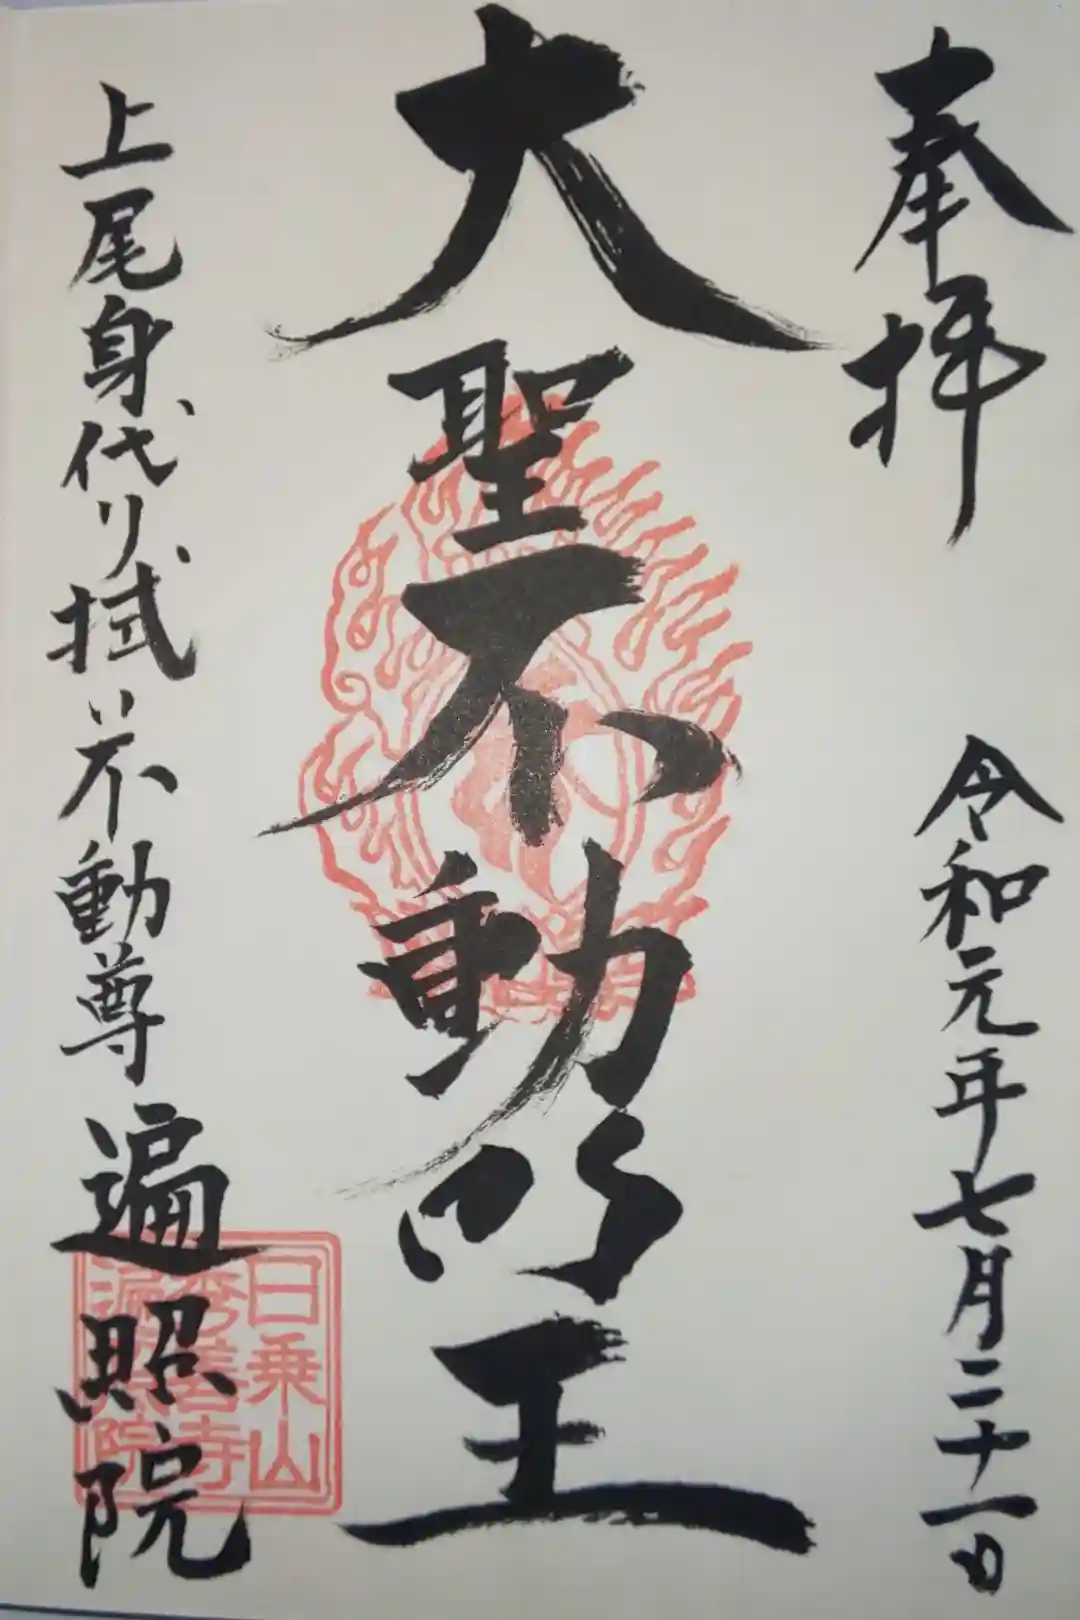 奉拝
令和元年七月二十一日
大聖不動明王
上尾身代り拭い不動尊
遍照院
日乗山
秀善寺
遍照院